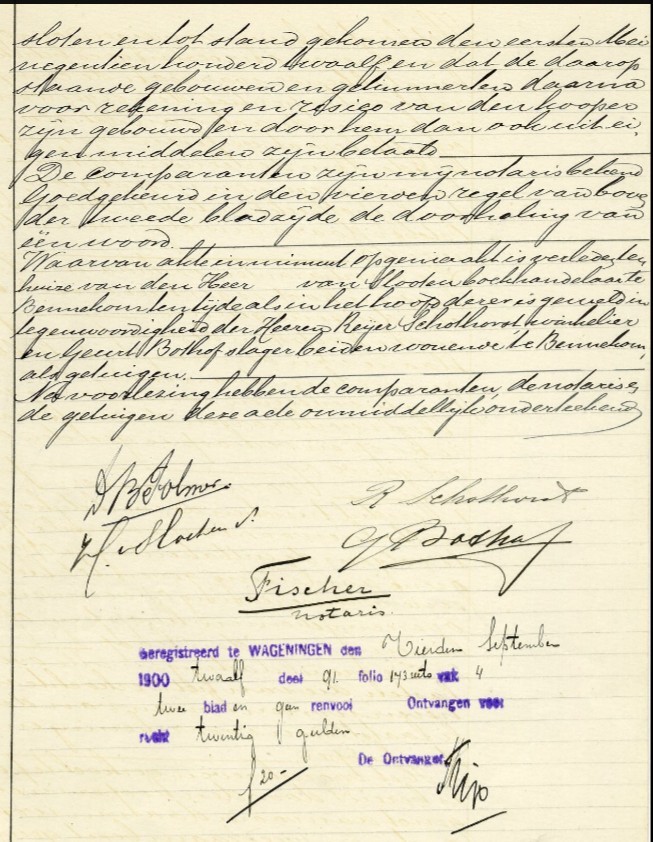 sloten en tot stand gekomen den eersten Mei
negentien honderd twaalf en dat de daarop
staande gebouwen en getimmerten daarna
voor rekening en risico van den kooper
zijn gebouwd en door hem dan ook uit ei-
gen middelen zijn betaald
De comparanten zijn mij notaris bekend
Goedgekeurd in den vierden regel van boven
der tweede bladzijde de doorhaling van
één woord.
Waarvan akte in minuut opgemaakt is verleden ten
huize van den Heer van Slooten boekhandelaar te
Bennekom ten tijde als in het hoofd dezer is gemeld in
tegenwoordigheid der Heeren Reijer Schothorst winkelier
en Geurt Boshof slager beiden wonende te Bennekom,
als getuigen.
Na voorlezing hebben de comparanten, de notaris en
de getuigen deze acte onmiddellijk onderteekend
R Schothorst
G Boshof
Fischer
notaris.
Geregistreerd te WAGENINGEN den Vierden September
1900 twaalf deel 91 folio 173 recto vak 4
twee blad en geen renvooi Ontvangen voor
recht twintig gulden
De Ontvanger
f 20-